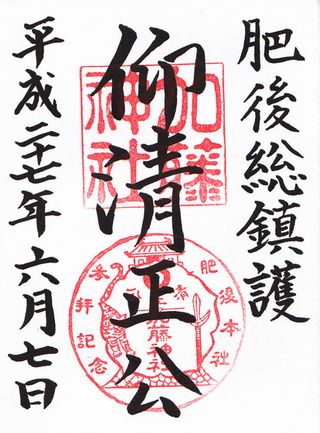 肥後総鎮護
仰清正公
平成二十七年六月七日
加藤神社
肥後本社
加藤神社
参拝記念